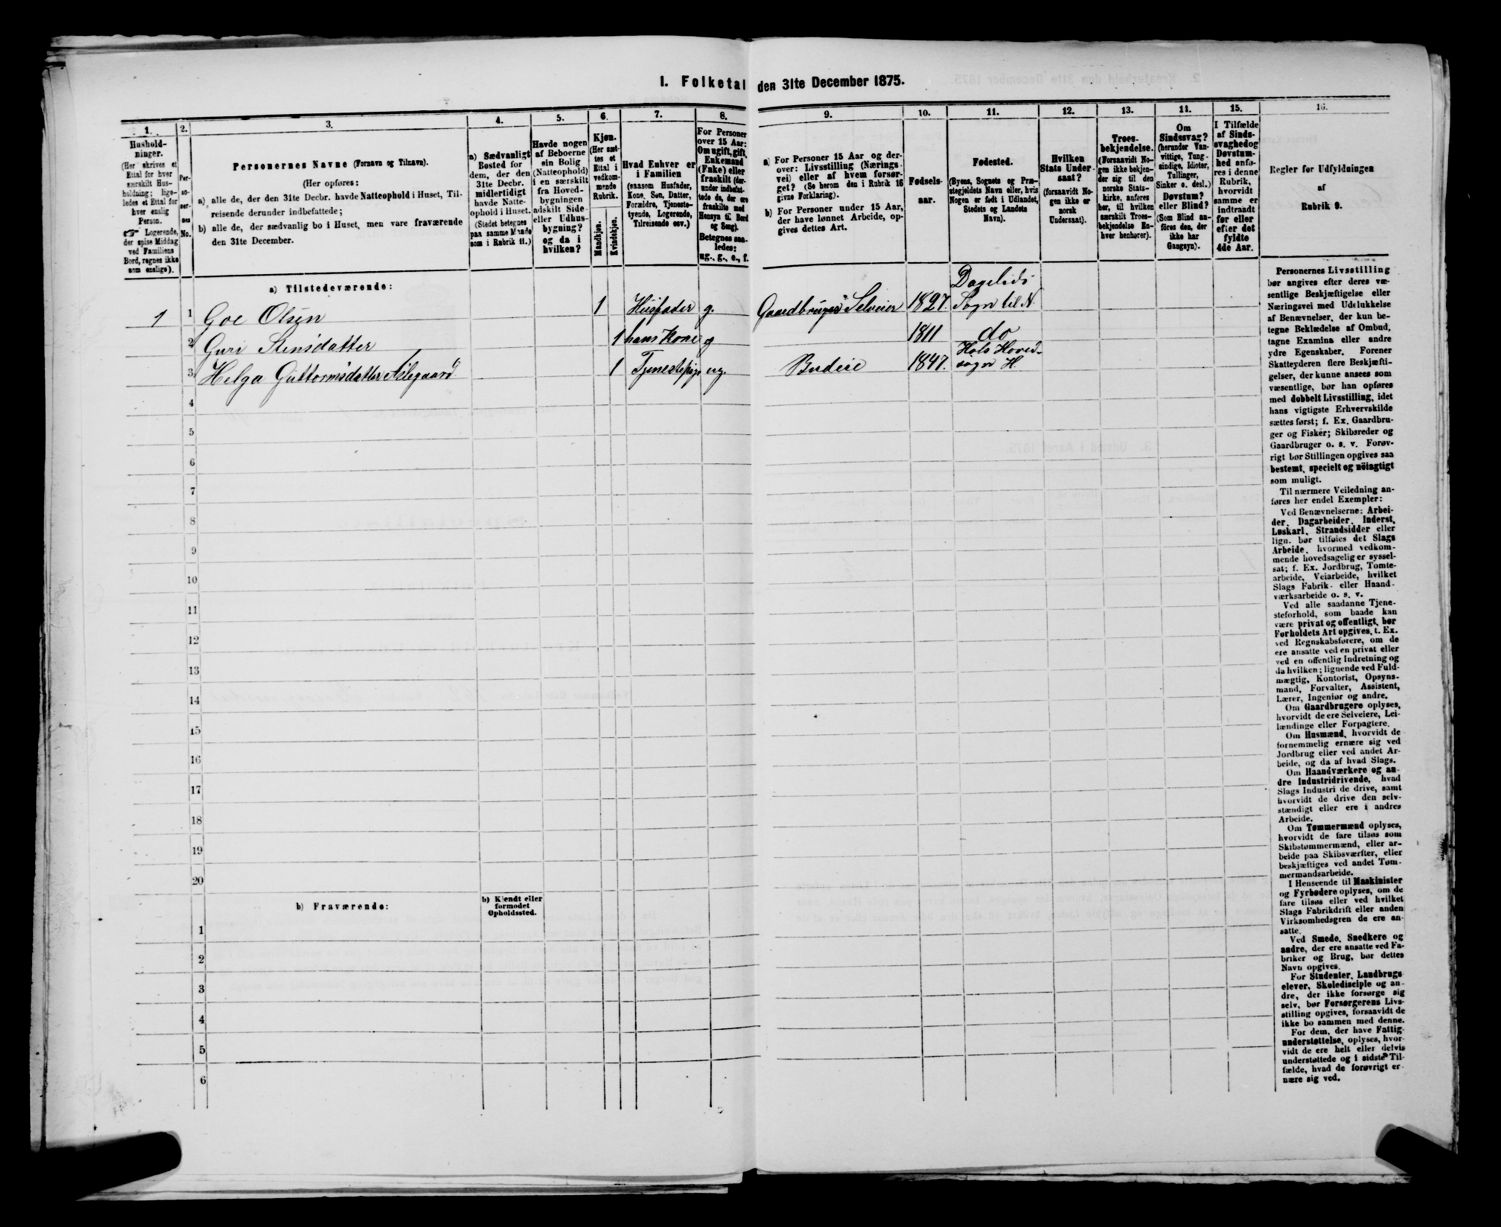 I. Folketal den 31te December 1875.
1.
2.
3.
4.
5.
6.
7.
8.
9.
10.
11.
12.
13.
14.
15.
16.
Hushold-
ninger.
(Her skrives et
Ettal for hver
særskilt Hus-
holdning; lige-
ledes et Ettal for
hver enslig
Person.
Logerende,
der spise Middag
ved Familiens
Bord, regnes ikke
som enslige).
Per-
No.
Personernes Navne (Fornavn og Tilnavn).
(Her opføres:
a) alle de, der den 31te Decbr. havde Natteophold i Huset, Til-
reisende derunder indbefattede;
b) alle de, der sædvanlig bo i Huset, men vare fraværende
den 31te December.
a) Sædvanligt
Bosted for
dem, der den
31te Decbr.
midlertidigt
havde Natte-
ophold i Huset.
(Stedet betegnes
paa samme Maade
som i Rubrik 11.)
Havde nogen
af Beboerne
ein Bolig
(Natteophold)
i en særskilt
fra Hoved-
bygningen
adskilt Side-
eller Udhus-
bygning?
og da i
hvilken?
Kjøn.
(Her sæt-
tes et
Ettal i
vedkom-
mende
Rubrik.
Mandkjøn.
Kvindekjøn.
Hvad Enhver er
i Familien
(saasom Husfader,
Kone, Søn, Datter,
Forældre, Tjeneste-
tyende, Logerende,
Tilreisende osv.)
For Personer
over 15 Aar:
Om ugift, gift,
Enkemand
(Enke) eller
fraskilt (der-
under indbefat-
tede de, der ere
fraskilte med
Hensyn til Bord
og Seng).
Betegnes saa-
ledes:
ug., g., e., f.
a) For Personer 15 Aar og der-
over: Livsstilling (Nærings-
vei) eller af hvem forsør-
get? (Se herom den i Rubrik 16
givne Forklaring).
b) For Personer under 15 Aar,
der have lønnet Arbeide, op-
gives dettes Art.
Fødsels-
aar.
Fødested.
(Byens, Sognets og Præ-
stegjeldets Navn eller, hvis
Nogen er født i Udlandet,
Stedets og Landets
Navn).
Hvilken
Stats Under-
saat?
(forsaavidt No-
gen ikke er
norsk
Undersaat).
Troes-
bekjendelse.
(Forsaavidt No-
gen ikke bekjen-
der sig til den
norske Stats-
kirke, anføres
her, til hvilken
særskilt Troes-
bekjendelse En-
hver henhører).
Om
Sindssvag?
(herunder Van-
vittige, Tung-
sindige, Idioter,
Tullinger,
Sinker o. desl.)
Døvstum?
eller Blind?
(Som Blind an-
føres den, der
ikke har
Gangsyn).
I Tilfælde
af Sinds-
svaghed og
Døvstum-
hed anfø-
res i denne
Rubrik,
hvorvidt
samme er
indtraadt
før eller
efter det
fyldte
4de Aar.
Regler for Udfyldningen
af
Rubrik 9.
a) Tilstedeværende:
1 1 Goe Olsen 1 Husfader g. Gaardbruger Selveier 1827. Sogn til N
2 Guri Stensdatter 1 hans Kone g 1811 do
3 Helga Guttormsdatter 1 ug. Budeie 1847. Hols Hoved-
sogn H
4
5
6
7
8
9
10
11
12
13
14
15
16
17
18
19
20
b) Fraværende:
b) Kjendt eller
formodet
Opholdssted.
1
2
3
4
5
6
Personernes Livsstilling
bør angives efter deres væ-
sentlige Beskjæftigelse eller
Næringsvei med Udelukkelse
af Benævnelser, der kun be-
tegne Beklædelse af Ombud,
tagne Examina eller andre
ydre Egenskaber. Forener
Skatteyderen flere Beskjæfti-
gelser, der kunne ansees som
væsentlige, bør han opføres
med dobbelt Livsstilling, idet
hans vigtigste Erhvervskilde
sættes først; f. Ex. Gaardbru-
ger og Fisker; Skibsreder og
Gaardbruger o. s. v. Forøv-
rigt bør Stillingen opgives saa
bestemt, specielt og nöiagtigt
som muligt.
Til nærmere Veiledning an-
føres her endel Exempler:
Ved Benævnelserne: Arbei-
der, Dagarbeider, Inderst,
Løskarl, Strandsidder eller
lign. bør tilføies det Slags
Arbeide, hvormed vedkom-
mende hovedsagelig er syssel-
sat; f. Ex. Jordbrug, Tomte-
arbeide, Veiarbeide, hvilket
Slags Fabrik- eller Haand-
værksarbeide o. s. v.
Ved alle saadanne Tjene-
steforhold, som baade kan
være privat og offentligt, bør
Forholdets Art opgives, t. Ex.
ved Regnskabsførere, om de
ere ansatte ved en privat eller
ved en offentlig Indretning og
da hvilken; lignende ved Fuld-
mægtig, Kontorist, Opsyns-
mand, Forvalter, Assistent,
Lærer, Ingeniør og andre.
Om Gaardbrugere oplyses,
hvorvidt de ere Selveiere, Lei-
lændinge eller Forpagtere.
Om Husmænd, hvorvidt de
fornemmelig ernære sig ved
Jordbrug eller ved andet Ar-
beide, og da af hvad Slags.
Om Haandværkere og an-
dre Industridrivende, hvad
Slags Industri de drive, samt
hvorvidt de drive den selv-
stændigt eller ere i andres
Arbeide.
Om Tømmermænd oplyses,
hvorvidt de fare tilsøs som
Skibstømmermænd, eller ar-
beide paa Skibsværfter, eller
beskjæftiges ved andet Tøm-
mermandsarbeide.
I Henseende til Maskinister
og Fyrbødere oplyses, om de
fare tilsøs eller ved hvilket
Slags Fabrikdrift eller anden
Virksomhedsgren de ere an-
satte.
Ved Smede, Snedkere og
andre, der ere ansatte ved Fa-
briker og Brug, bør dettes
Navn opgives.
For Studenter, Landbrugs-
elever, Skoledisciple og an-
dre, der ikke forsørge sig
selv, bør Forsørgerens Livs-
stilling opgives, forsaavidt de
ikke bo sammen med denne.
For dem, der have Fattig-
understøttelse, oplyses, hvor-
vidt de ere helt eller delvis
understøttede og i sidste Til-
fælde, hvad de forøvrigt er-
nære sig ved.